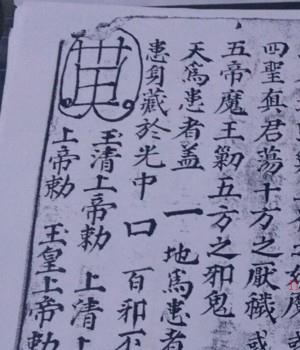 四聖真君蕩十方之厭穢 或
五帝魔王勦五方之邪鬼
天爲患者蓋 一 地爲患者
患身藏於光中 口 百邪不
玉清上帝勅 上清上
上帝勅 玉皇上帝勅